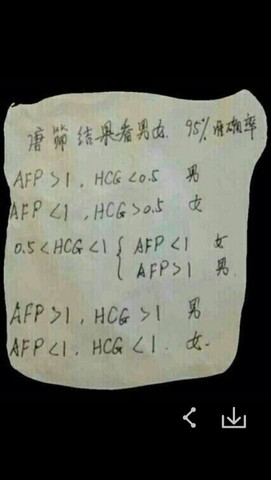 唐筛结果看男女 95%准确率
AFP>1, HCG<0.5 男
AFP<1, HCG>0.5 女
0.5<HCG<1 { AFP<1 女
AFP>1 男.
AFP>1, HCG>1 男
AFP<1. HCG<1. 女.